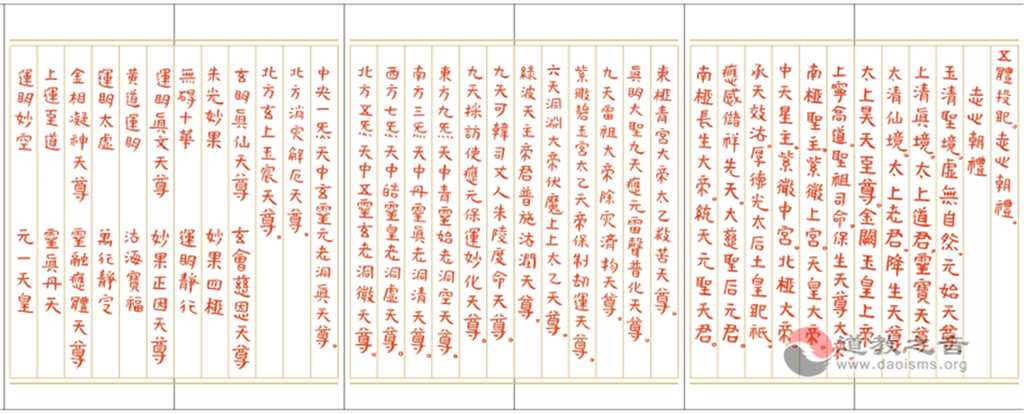 五體投地。志心朝禮。
志心朝禮
玉清聖境。虛無自然。元始天尊。
上清真境。太上道君。靈寶天尊。
太清仙境。太上老君。降生天尊。
太上昊天至尊。金闕玉皇上帝。
上寧高道。聖祖司命。保生天尊大帝。
南極聖主。紫微上宮。天皇大帝。
中天星主。紫微中宮。北極大帝
承天效法厚德光大后土皇地祇。
應感儲祥。先天。大慈聖后元君。
南極長生大帝。統天元聖天君。
東極青宮大帝太乙救苦天尊。
眞明大聖九天應元雷聲普化天尊。
九天雷祖大帝除灾濟物天尊。
紫微碧玉宮太乙天帝保制劫運天尊。
六天洞淵大帝伏魔上上太乙天尊。
綠波天主帝君普施法潤天尊。
九天可韓司丈人朱陵度命天尊。
九天採訪使應元保運妙化天尊。
東方九炁天中青靈始老洞空天尊。
南方三炁天中丹靈眞老洞清天尊。
西方七炁天中皓靈皇老洞虛天尊。
北方五炁天中五靈玄老洞微天尊。
中央一炁天中玄靈元老洞眞天尊。
北方消灾解厄天尊。
北方玄上玉宸天尊。
玄明眞仙天尊 玄會慈恩天尊
朱光妙果 妙果四極
無碍十華 運明靜行
運明眞文天尊 妙果正因天尊
黄道運明 法海寶福
運明太虛 萬行靜定
金相凝神天尊 靈融應體天尊
上運至道 靈眞丹天
運明妙空 元一天皇
道教之音
www.daoisms.org